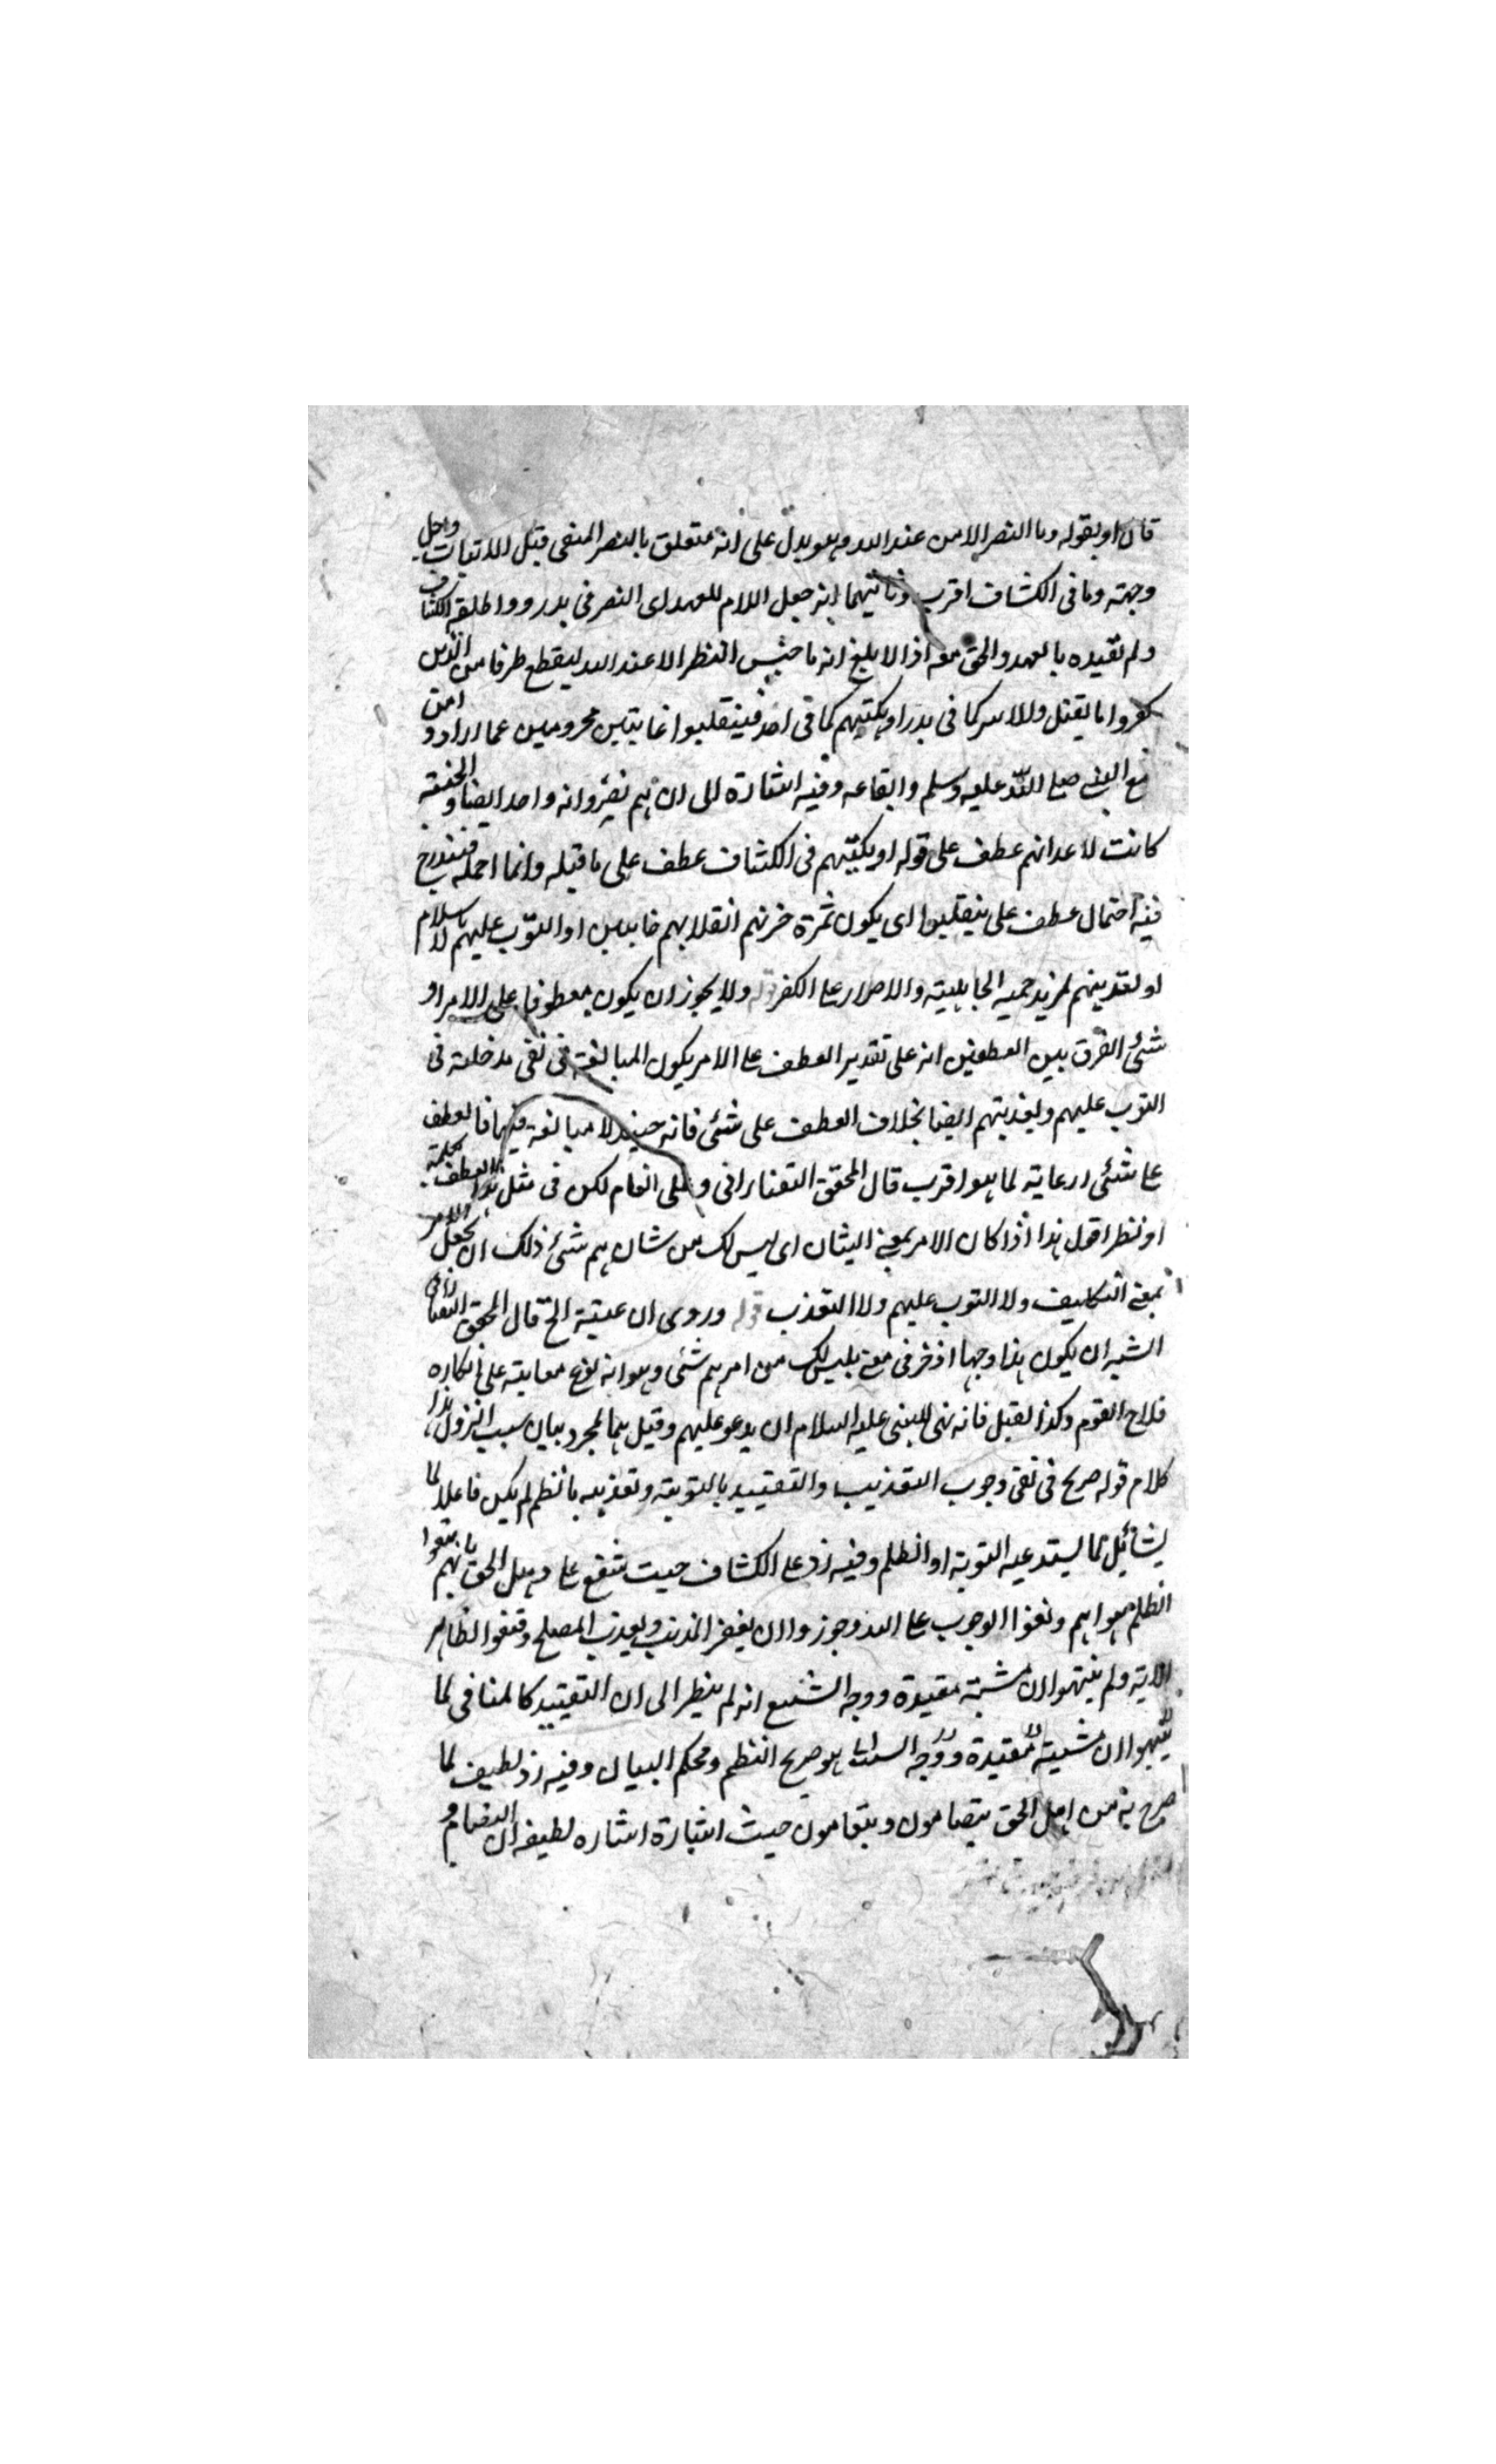 قال او بقوله وما النصر الا من عند الله وهو يدل على انه متعلق بالنصر المنفى قبل الاثبات وجعل
وجهته وما فى الكشاف اقرب وثانيهما انه جعل اللام للعهد اى النصر فى بدر وواطلقه الكشاف
ولم تقيده بالعهد والحق معه اذ الابلغ انه ما جنس النظر الا عند الله ليقطع طرفا من الذين
كفروا اما بقتل والاسر كما فى بدر او يكبتهم كما فى احد فينقلبوا خائبين محرومين عما ارادوا من
مع النبى صلى الله عليه وسلم واتباعه وفيه اشارة الى ان هم نفر وانه واحد ايضا والخيبة
كانت لاعدائهم عطف على قوله او يكبتهم فى الكشاف عطف على ما قبله وانما احمله فيندرج
فيه احتمال عطف على ينقلبوا اى يكون ثمرة خزيهم انقلابهم خائبين او التوب عليهم بالاسلام
او تعذيبهم لمزيد حمية الجاهلية والاصرار على الكفر قوله ولا يجوز ان يكون معطوفا على الامر او
شئ الفرق بين العطفين انه على تقدير العطف على الامر يكون المبالغة فى نفى مدخلة فى
التوب عليهم وتعذيبهم ايضا بخلاف العطف على شئ فانه حينئذ لا مبالغة فيها فالعطف
على شئ رعاية لما هو اقرب قال المحقق التفتازانى و على انعام لكن فى مثل هذا العطف بكلمة
او نظر اقول هذا اذا كان الامر بمعنى الشان اى ليس لك من شان هم شئ ذلك ان تجعل الامر
بمعنى التكليف ولا التوب عليهم ولا التعذب قوله وروى ان عتبة الخ قال المحقق التفتازانى
الشبه ان يكون هذا وجها اخر فى معنى ليس لك من امرهم شئ وهو انه نوع معاتبة على انكاره
فلاح القوم وكذا لقيل فانه نهى للنبى عليه السلام ان يدعو عليهم وقيل هما لمجرد بيان سبب النزول هذا
كلام قوله صريح فى نفى وجوب التعذيب والتقييد بالتوبة وتعذيبه بالظلم لم يكن فاعلا لما
يشاء بل لما يستدعيه التوبة او الظلم وفيه رد على الكشاف حيث شنع على اهل الحق بانهم تبعوا
الظلم هواهم ونفوا الوجوب على الله وجوزوا ان يغفر المذنب ويعذب المصلح وقنعوا الظاهر
الاية ولم يتنبهوا ان مشيته مقيدة ووجه الشنيع انه لم ينظر الى ان التقييد كالمنافى لما
يتنبهوا ان مشيته مقيدة ووجه هو صريح النظم ومحكم البيان وفيه رد لطيف لما
صرح به من اهل الحق يتصامون ويتعامون حيث اشارة اشاره لطيفه ان